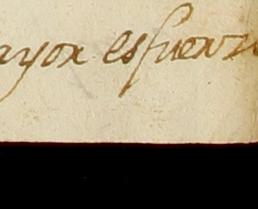 ayor esfuerz